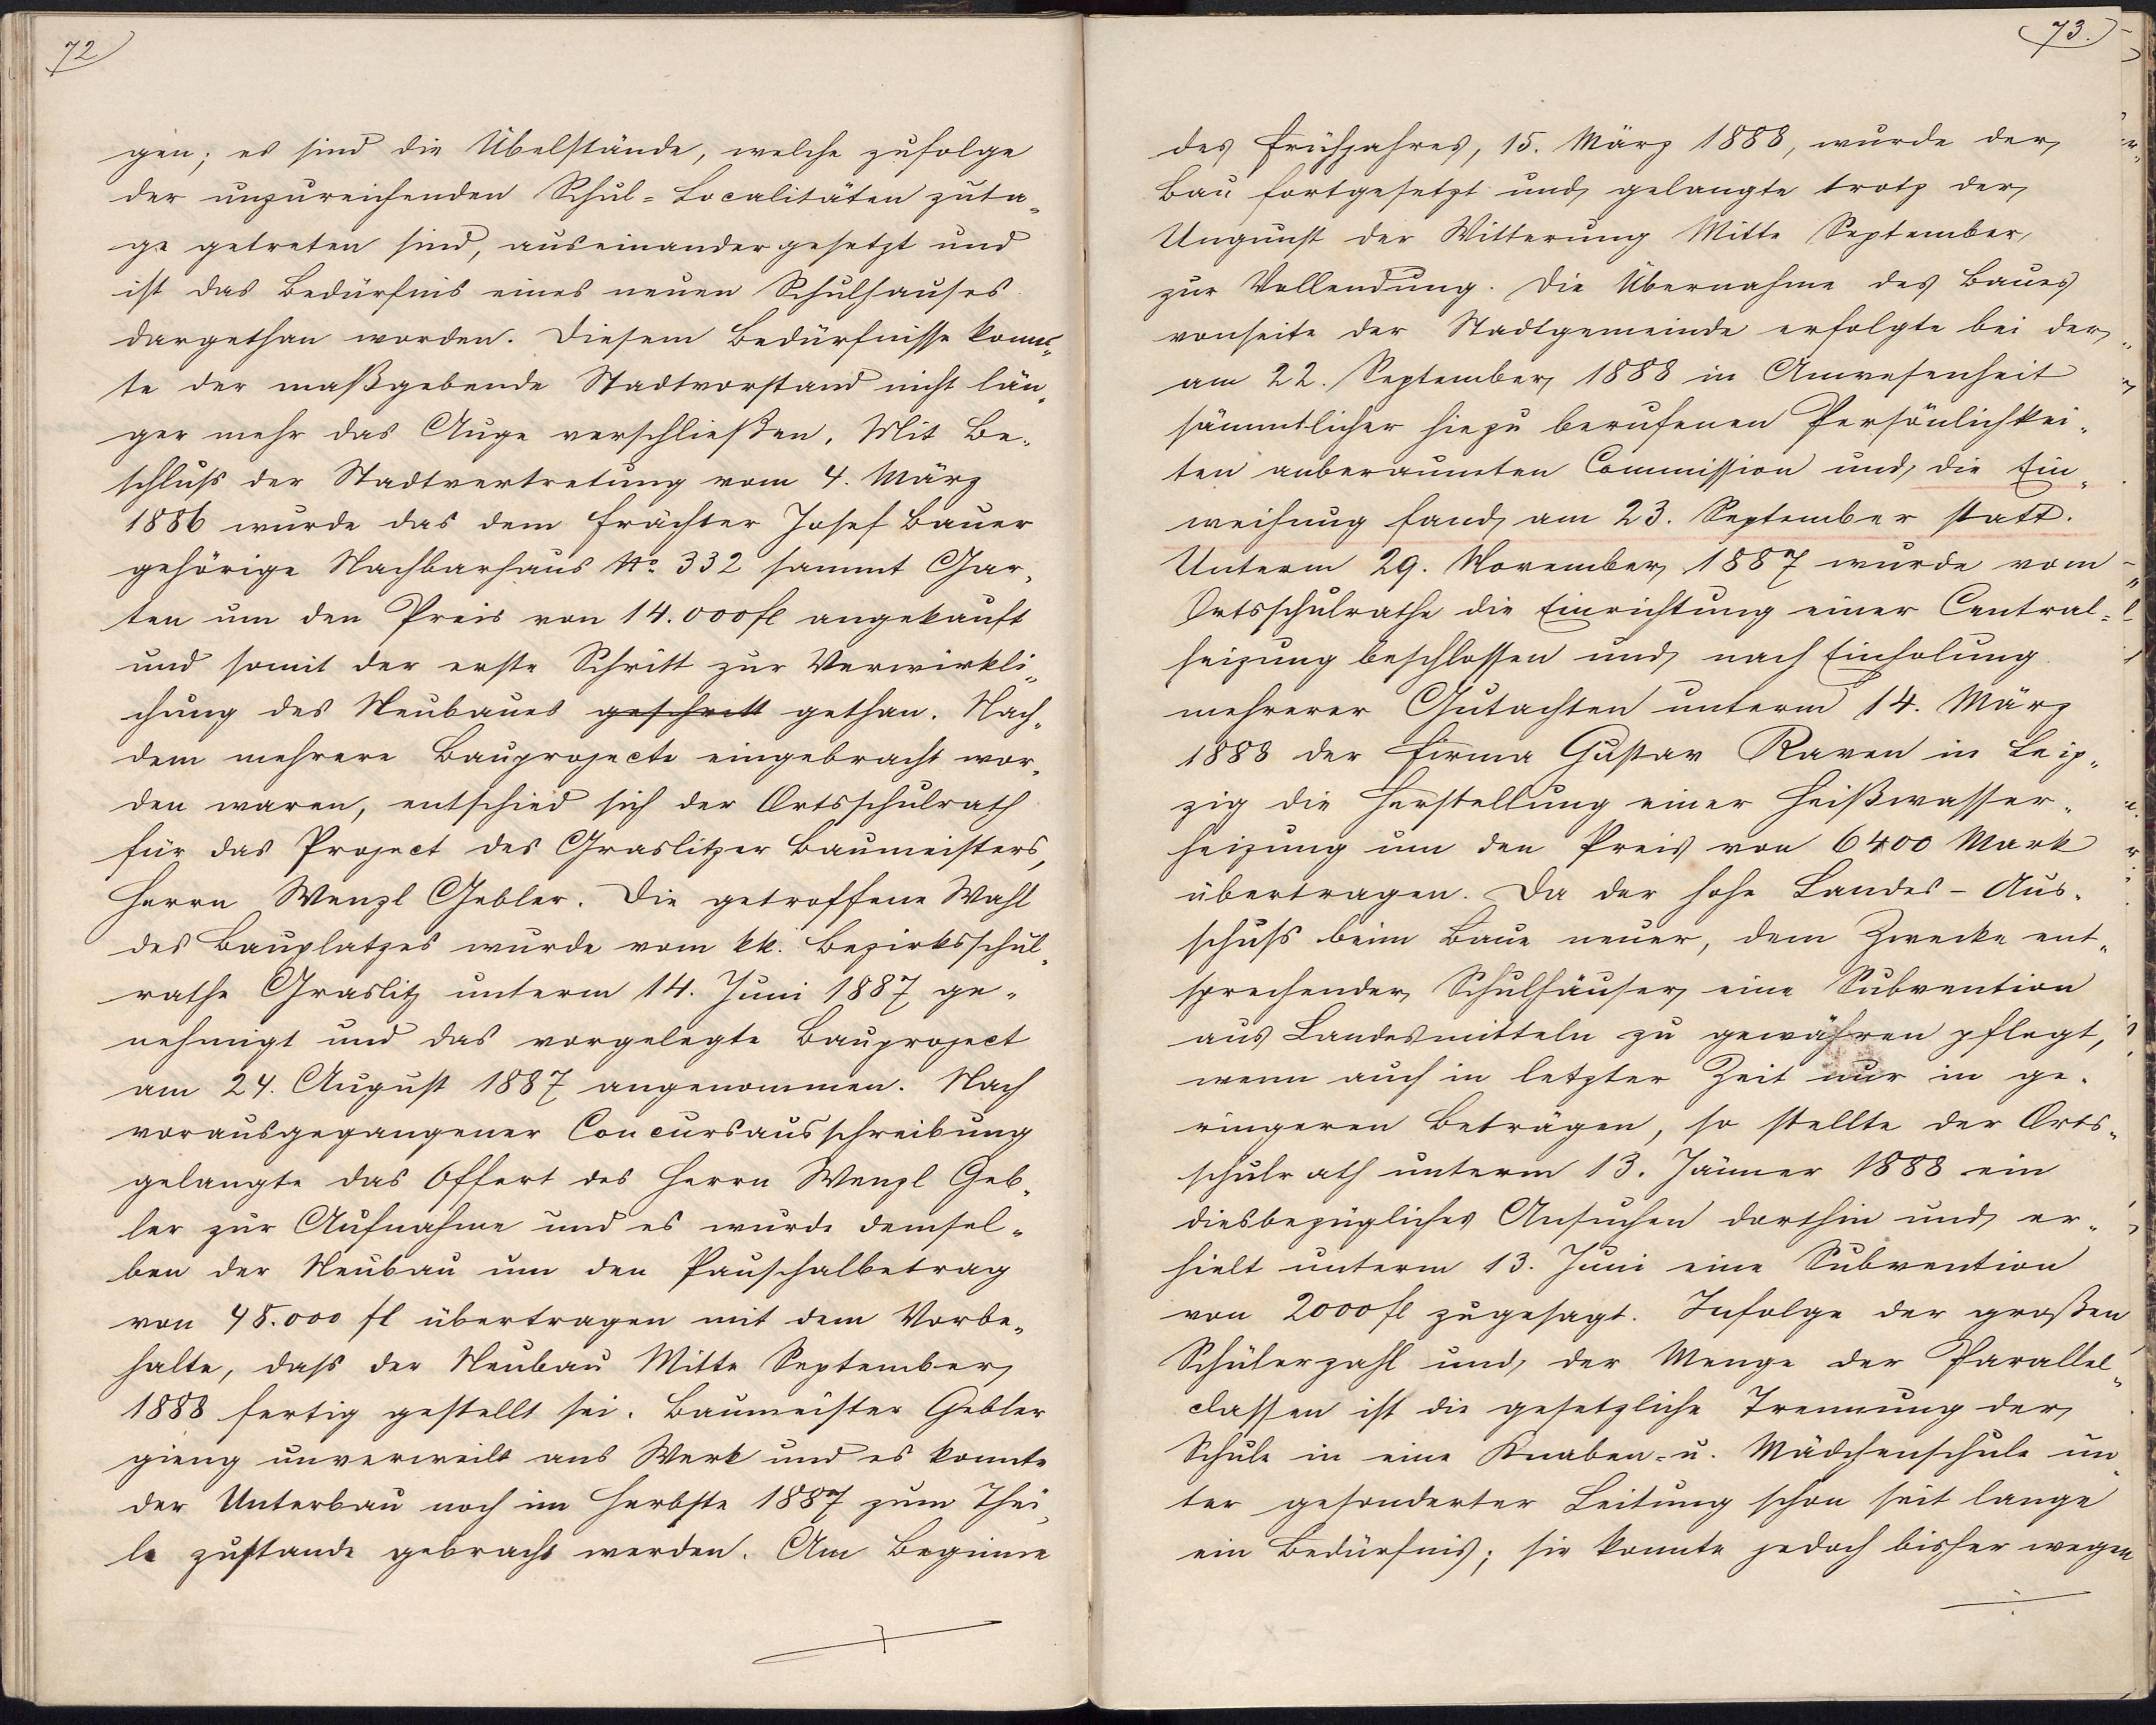 72
gen; es sind die Übelstände, welche zufolge
der unzureichenden Schul=Localitäten zuta„
ge getreten sind, auseinander gesetzt und
ist das Bedürfnis eines neuen Schulhauses
dargethan worden. Diesem Bedürfnisse konn„
te der maßgebende Stadtvorstand nicht län„
ger mehr das Auge verschließen. Mit Be„
schluss der Stadtvertretung vom 4. März
1886 wurde das dem Frächter Josef Bauer
gehörige Nachbarhaus No. 332 sammt Gar„
ten um den Preis von 14.000 fl angekauft
und somit der erste Schritt zur Verwirkli„
chung des Neubaues geschritt gethan. Nach„
dem mehrere Bauprojecte eingebracht wor„
den waren, entschied sich der Ortsschulrath
für das Project des Graslitzer Baumeisters,
Herrn Wenzl Gebler. Die getroffene Wahl
des Bauplatzes wurde vom kk. Bezirksschul„
rathe Graslitz unterm 14. Juni 1887 ge„
nehmigt und das vorgelegte Bauproject
am 24. August 1887 angenommen. Nach
vorausgegangener Concursausschreibung
gelangte das Offert des Herrn Wenzl Geb„
ler zur Aufnahme und es wurde demsel„
ben der Neubau um den Pauschalbetrag
von 48.000 fl übertragen mit dem Vorbe„
halte, dass der Neubau Mitte September
1888 fertig gestellt sei. Baumeister Gebler
gieng unverweilt ans Werk und es konnte
der Unterbau noch im Herbste 1887 zum Thei„
le zustande gebracht werden. Am Beginne
73.
des Frühjahres, 15. März 1888, wurde der
Bau fortgesetzt und gelangte trotz der
Ungunst der Witterung Mitte September
zur Vollendung. Die Übernahme des Baues
vonseite der Stadtgemeinde erfolgte bei der
am 22. September 1888 in Anwesenheit
sämmtlicher hiezu berufenen Persönlichkei„
ten anberaumten Commission und die Ein„
weihung fand am 23. September statt.
Unterm 29. November 1887 wurde vom
Ortsschulrathe die Einrichtung einer Central=
heizung beschlossen und nach Einholung
mehrerer Gutachten unterm 14. März
1888 der Firma Gustav Raven in Leip„
zig die Herstellung einer Heißwasser„
heizung um den Preis von 6400 Mark
übertragen. Da der hohe Landes-Aus„
schuss beim Baue neuer, dem Zwecke ent„
sprechender Schulhäuser eine Subvention
aus Landesmitteln zu gewähren pflegt,
wenn auch in letzter Zeit nur in ge„
ringeren Beträgen, so stellte der Orts„
schulrath unterm 13. Jänner 1888 ein
diesbezügliches Ansuchen dorthin und er„
hielt unterm 13. Juni eine Subvention
von 2000 fl zugesagt. Infolge der großen
Schülerzahl und der Menge der Parallel„
classen ist die gesetzliche Trennung der
Schule in eine Knaben=u. Mädchenschule un„
ter gesonderter Leitung schon seit lange
ein Bedürfnis; sie konnte jedoch bisher wegen